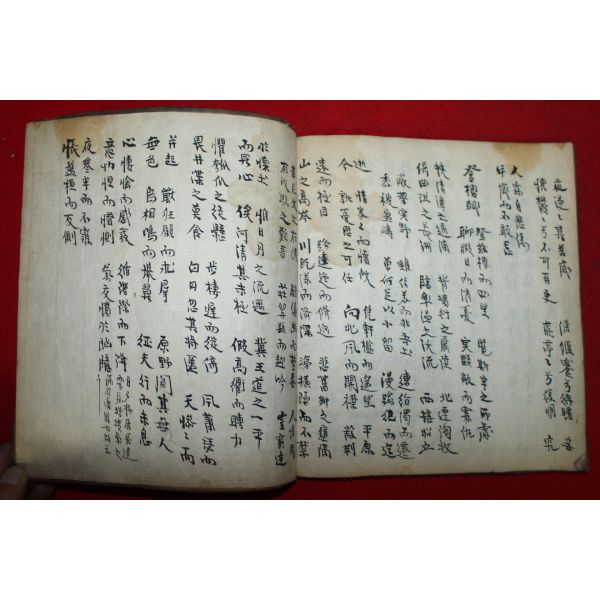 夜漫〻其若歲 澹偃蹇兮待曙 妾
懷鬱〻兮不可再更 荒亭〻兮復明 究
人竊自悲傷
年歲而不敢忘
登樓賦 登玆樓而四望 覽斯宇之所處
聊暇日而消憂 實顯敞而寡仇
挾清漳之通浦 背墳衍之廣陸 北連陶牧
倚曲沮之長洲 臨皐隰之沃流 西接昭丘
蔽實野 雖信美而非吾土 遭紛濁而遷
黍稷盈疇 曾何足以少留 漫踰紀而迄
逝 情眷〻而懷歸 憑軒檻而遙望 平原
今 孰憂思之可任 向北風而開襟 蔽荊
遠而極目 路逶迤而脩逈 悲舊鄕之壅隔
山之高岑 川旣漾而濟深 涕橫墜而不禁
在陳 鍾儀幽而楚奏 人情同
有歸歟之歎音 莊舃顯而越吟 豈窮達
於懷土 惟日月之逾邁 冀王道之一平
而異心 俟河清其未極 假高衢而騁力
懼匏瓜之徒懸 步棲遲而徙倚 風蕭瑟而
畏井渫之莫食 白日忽其將匿 天慘〻而
並起 獸狂顧而求羣 原野闃其無人
無色 鳥相鳴而擧翼 征夫行而未息
心悽愴而感發 循階除而下降
意忉怛而憯惻 氣交憤於胸臆
夜參半而不寐
悵盤桓而反側